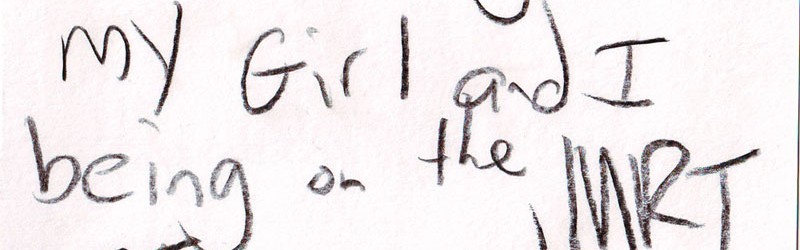 my Girl and I
being on the MRT